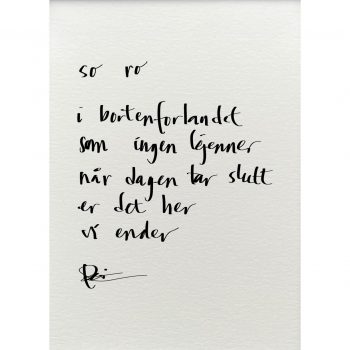 so ro
i bortenforlandet
som ingen kjenner
når dagen tar slutt
er det her
vi ender